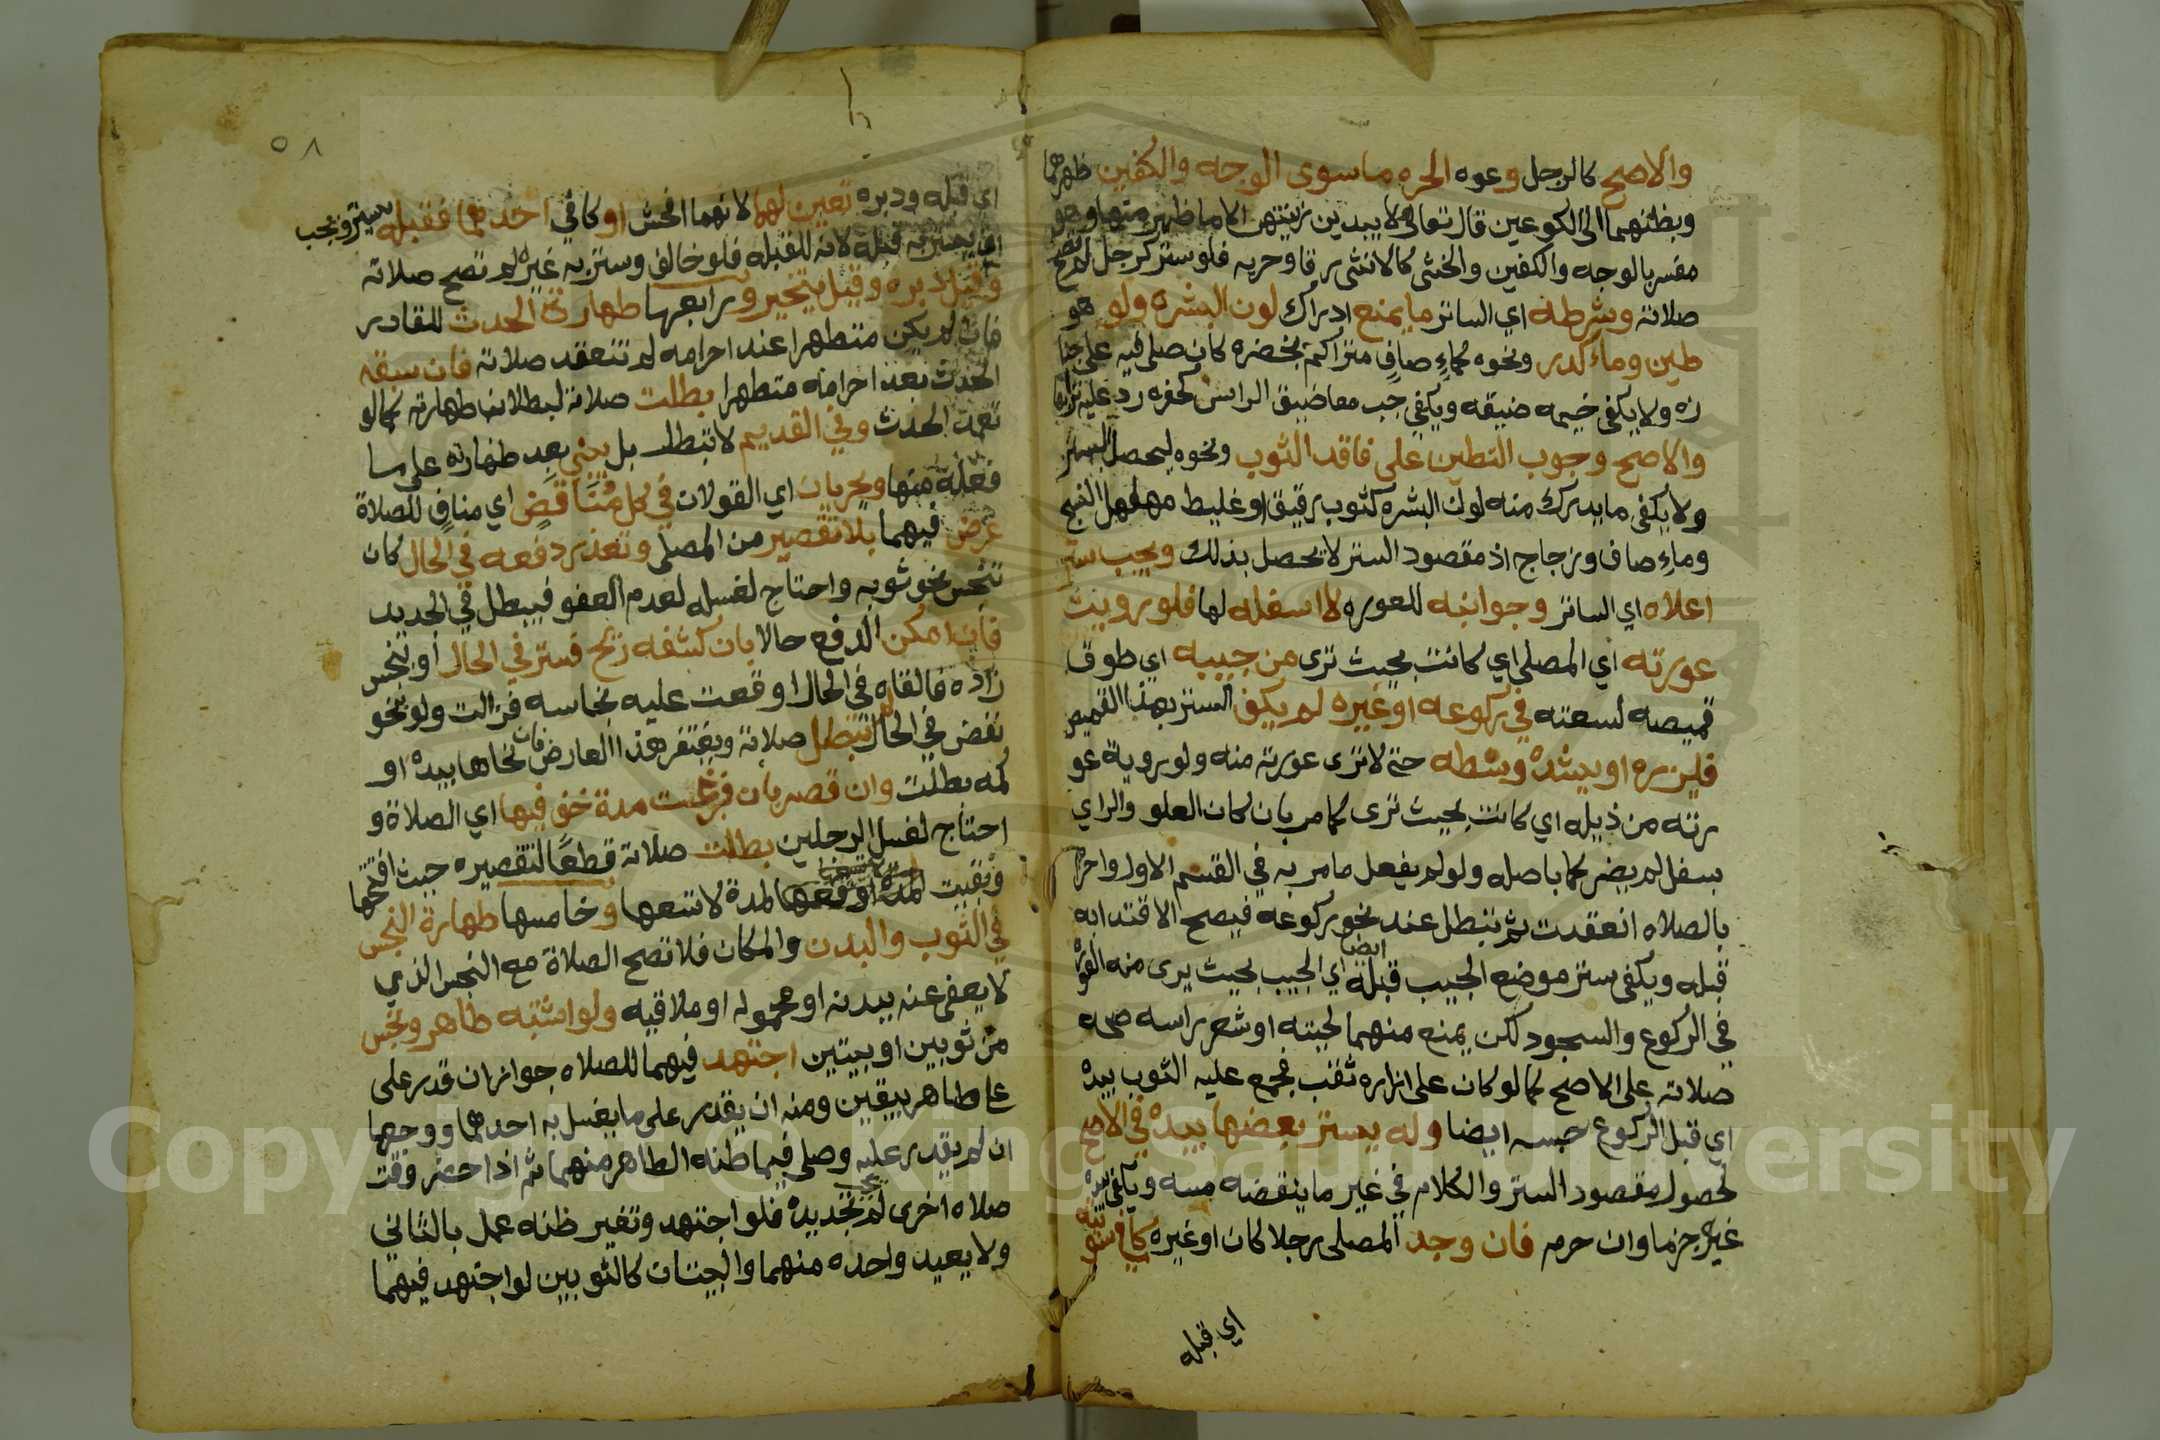 والاصح كالرجل وعوه الحره ما سوى الوجه والكفين ظهرهما
وبطنهما الى الكوعين قال تعالى ولا يبدين زينتهن الا ما ظهر منها وهو
مفسر بالوجه والكفين والخنثى كالانثى رقا وحريه فلو ستر كرجل لم تصح
صلاته وشرطه اي الساتر ما يمنع ادراك لون البشره ولو هو
طين وماء كدر ونحوه كماء صاف متراكم بخضره كان صلى فيه على جنا
زه ولا يكفى خيمه ضيقه ويكفى جب معا ضيق الراس كحفره رد عليه ترابها
والاصح وجوب التطين على فاقد الثوب ونحوه ليحصل الستر
ولا يكفى ما يدرك منه لون البشره كثوب رقيق او غليط مهلهل النسج
وماء صاف وزجاج اذ مقصود الستر لا يحصل بذلك ويجب ستر
اعلاه اي الساتر وجوانبه للعوره لا اسفله لها فلو رويت
عورته اي المصلى اي كانت بحيث ترى من جيبه اي طوق
قميصه لسعته في ركوعه او غيره لم يكف الستر بهذا القميص
فليزره او يشد وسطه حتى لا ترى عورته منه ولو بروية عو
رته من ذيله اي كانت بحيث ترى كما مر بان كان العلو والراي
بسفل لم يضر كما باصله ولو لم يفعل ما مر به في القسم الاول واحرم
بالصلاه انعقدت ثم تبطل عند نحو ركوعه فيصح الاقتدا به
قبله ويكفى ستر موضع الجيب قبله ايضا اي الجيب بحيث يرى منه العوره
في الركوع والسجود لكن يمنع منهما لحيته او شعر راسه صحه
صلاته على الاصح كما لو كان على ازاره ثقب فجمع عليه الثوب بيده
اي قبل الركوع حبسه ايضا وله يستر بعضها بيده في الاصح
لحصول مقصود الستر والكلام في غير ما ينقضه مسه ويكفى بيد
غيره جزما وان حرم فان وجد المصلى رجلا كان او غيره كافى سوئتيه
اي قبله
٥٨
اي قبله ودبره تعين لهما لانهما افحش او كافي احدهما فقبله يستر ويجب
ان يستر به قبله لانه للقبله فلو خالف وستر به غيره لم تصح صلاته
وقيل دبره وقيل يتخير ورابعها طهارة الحدث للقادر
فان لم يكن متطهرا عند احرامه لم تنعقد صلاته فان سبقه
الحدث بعد احرامه متطهرا بطلت صلاته لبطلان طهارته كما لو
تعمد الحدث وفي القديم لا تبطل بل يبني بعد طهارته على ما
فعله منها ويجريان اي القولان في كل مناقض اي مناف للصلاة
عرض فيهما بلا تقصير من المصلى وتعذر دفعه في الحال كان
تنجس نحو ثوبه واحتاج لغسله لعدم العفو فيبطل في الجديد
فان امكن الدفع حالا بان كشفه ريح فستر في الحال او تنجس
رداه فالقاه في الحال او قعت عليه نجاسه فزالت ولو بنحو
نفض في الحال لم تبطل صلاته ويغتفر هذا العارض فان نحاها بيده او
كمه بطلت وان قصر بان فرغت مدة خف فيها اي الصلاة و
احتاج لغسل الرجلين بطلت صلاته قطعا لتقصيره حيث افتتحها
وبقيت المدة او وقعها لمدة لا تسعها وخامسها طهارة النجس
في الثوب والبدن والمكان فلا تصح الصلاة مع النجس الذي
لا يعفى عنه ببدنه او محموله او ملاقيه ولو اشتبه طاهر ونجس
من ثوبين او بيتين اجتهد فيهما للصلاه جوازا ان قدر على
على طاهر بيقين ومنه ان يقدر على ما يغسل به احدهما ووجوبا
ان لم يقدر عليه وصلى فيما ظنه الطاهر منهما ثم اذا حضر وقت
صلاه اخرى لم يجب تجديده فلو اجتهد وتغير ظنه عمل بالثاني
ولا يعيد واحده منهما والبيتان كالثوبين لو اجتهد فيهما
Copyright © King Saud University